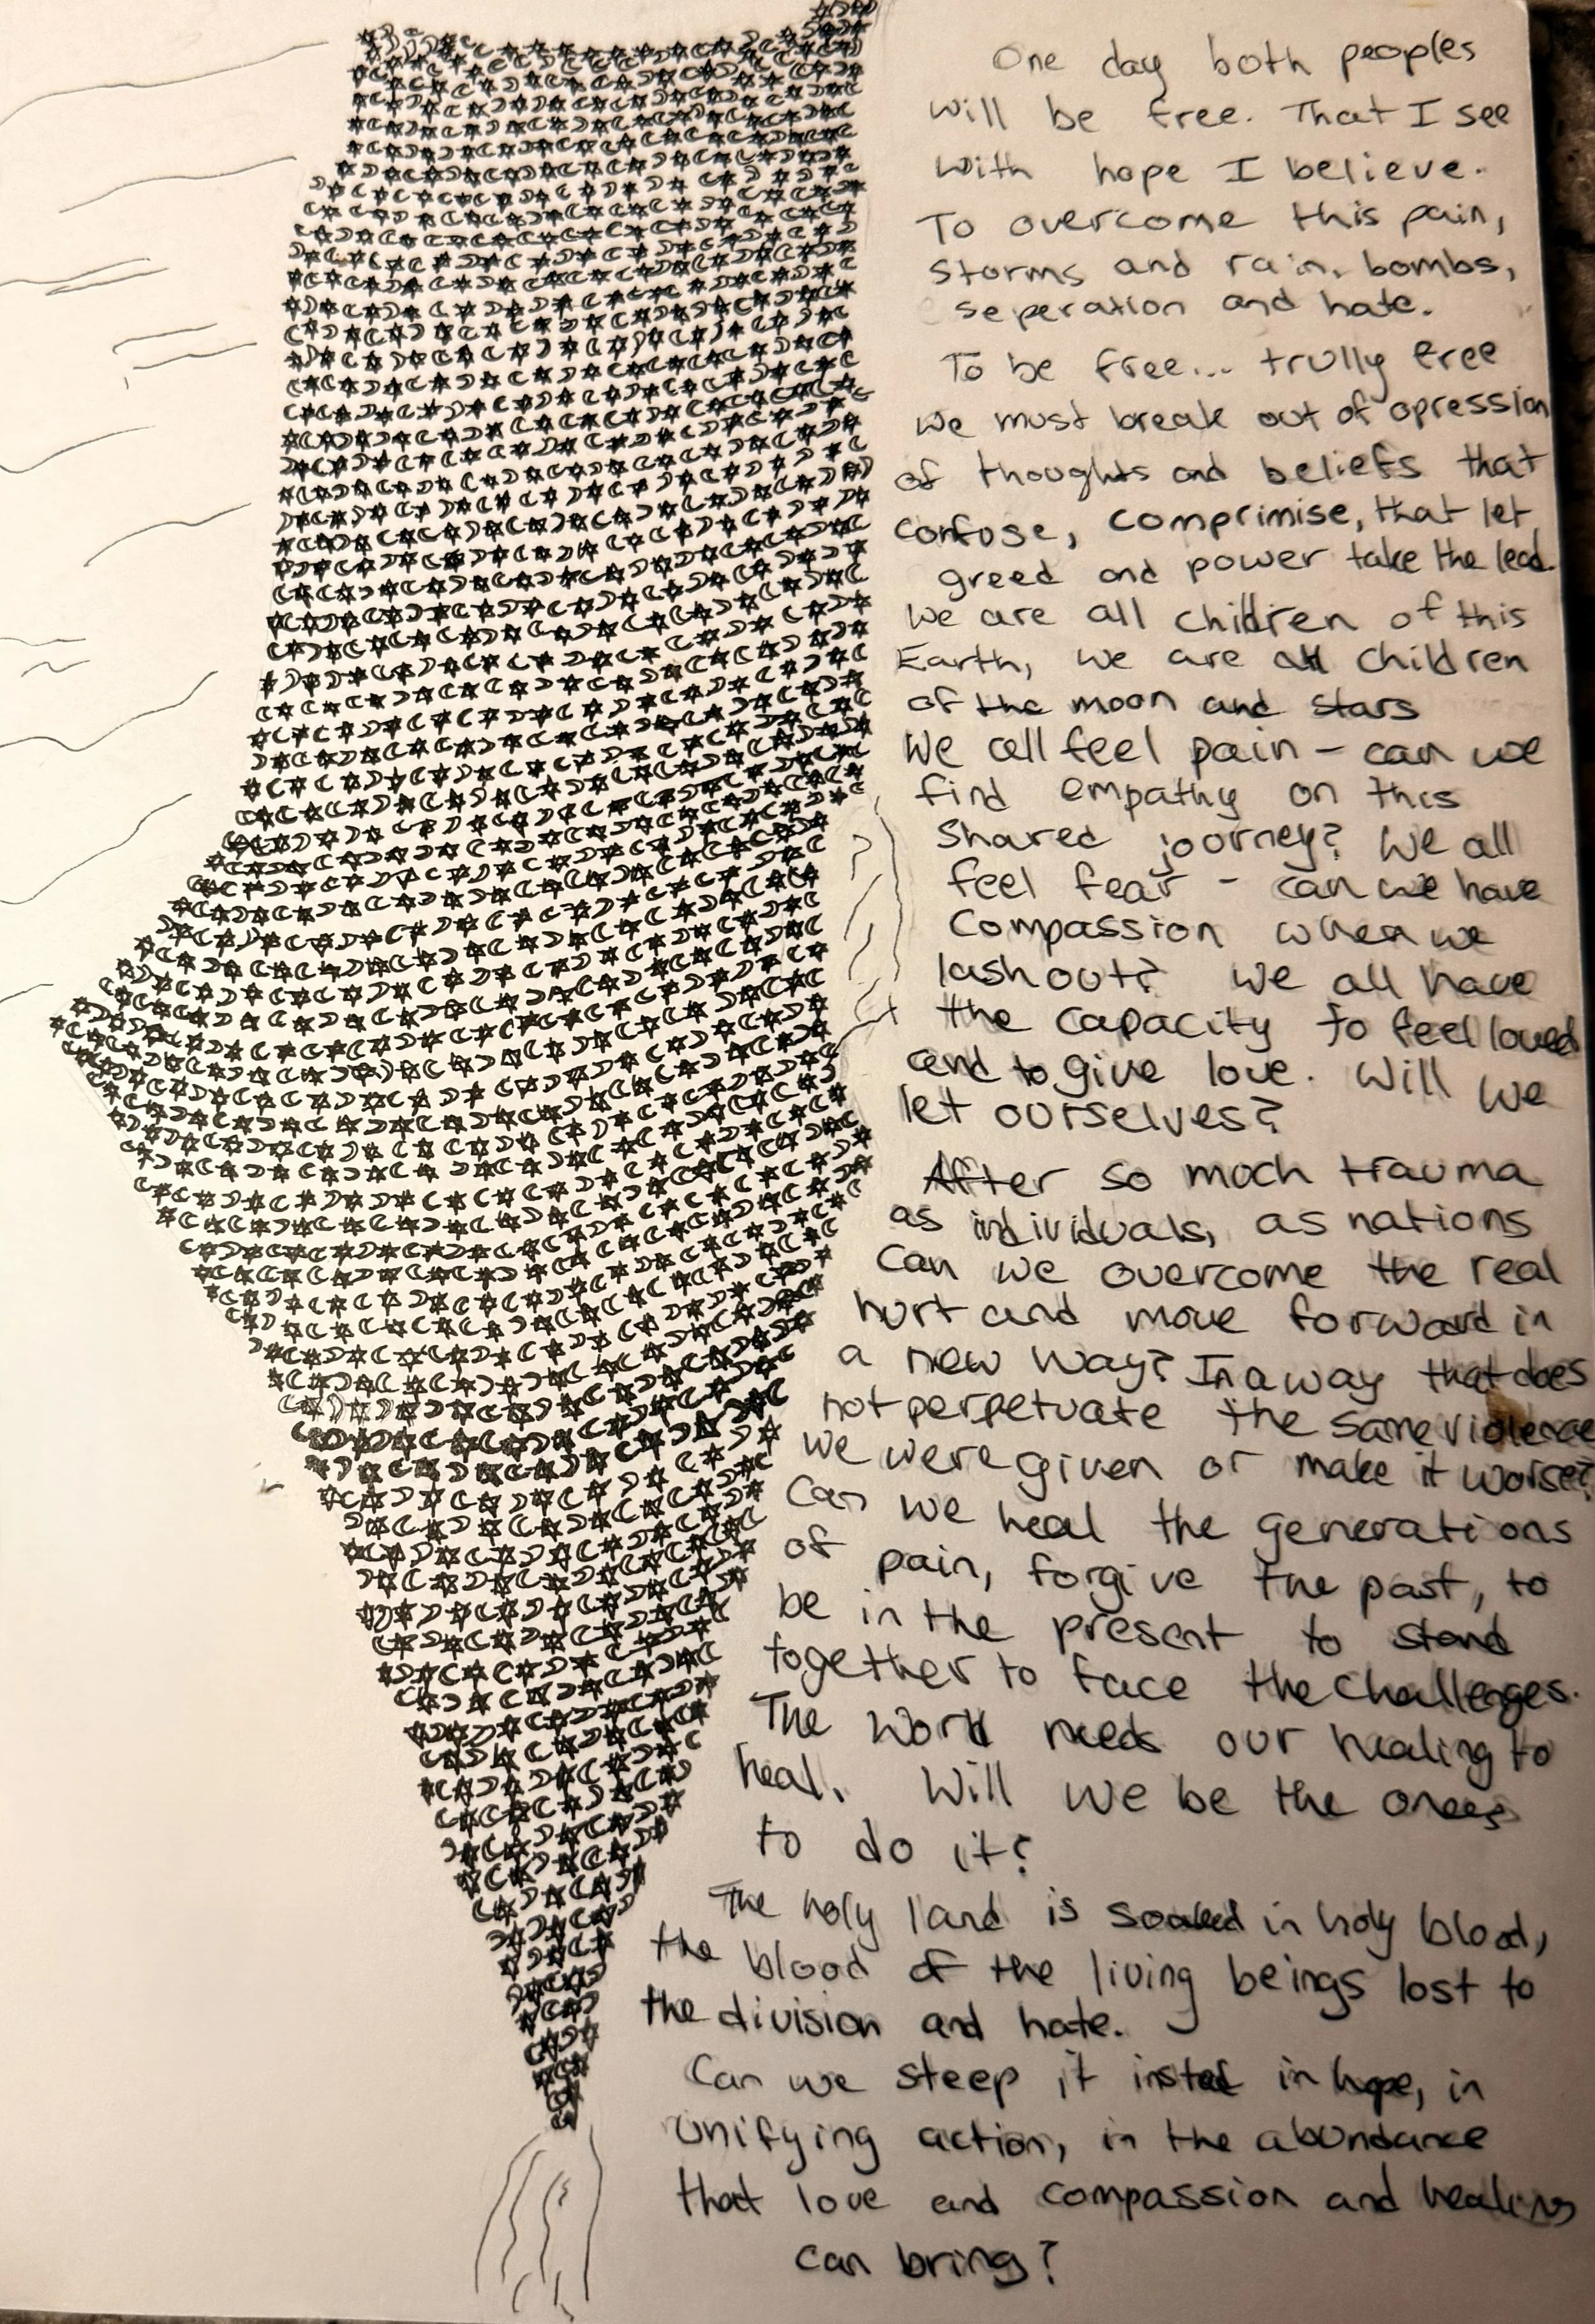 One day both peoples
will be free. That I see
with hope I believe.
To overcome this pain,
storms and rain, bombs,
seperation and hate.
To be free... trully free
we must break out of opression
of thoughts and beliefs that
confuse, comprimise, that let
greed and power take the lead.
We are all children of this
Earth, we are all children
of the moon and stars
We all feel pain - can we
find empathy on this
shared journey? We all
feel fear - can we have
compassion when we
lash out? We all have
the capacity to feel loved
and to give love. Will we
let ourselves?
After so much trauma
as individuals, as nations
can we overcome the real
hurt and move forward in
a new way? In a way that does
not perpetuate the same violence
we were given or make it worse?
Can we heal the generations
of pain, forgive the past, to
be in the present to stand
together to face the challenges.
The world needs our healing to
heal. Will we be the ones
to do it?
The holy land is soaked in holy blood,
the blood of the living beings lost to
the division and hate.
Can we steep it instead in hope, in
unifying action, in the abundance
that love and compassion and healing
can bring?